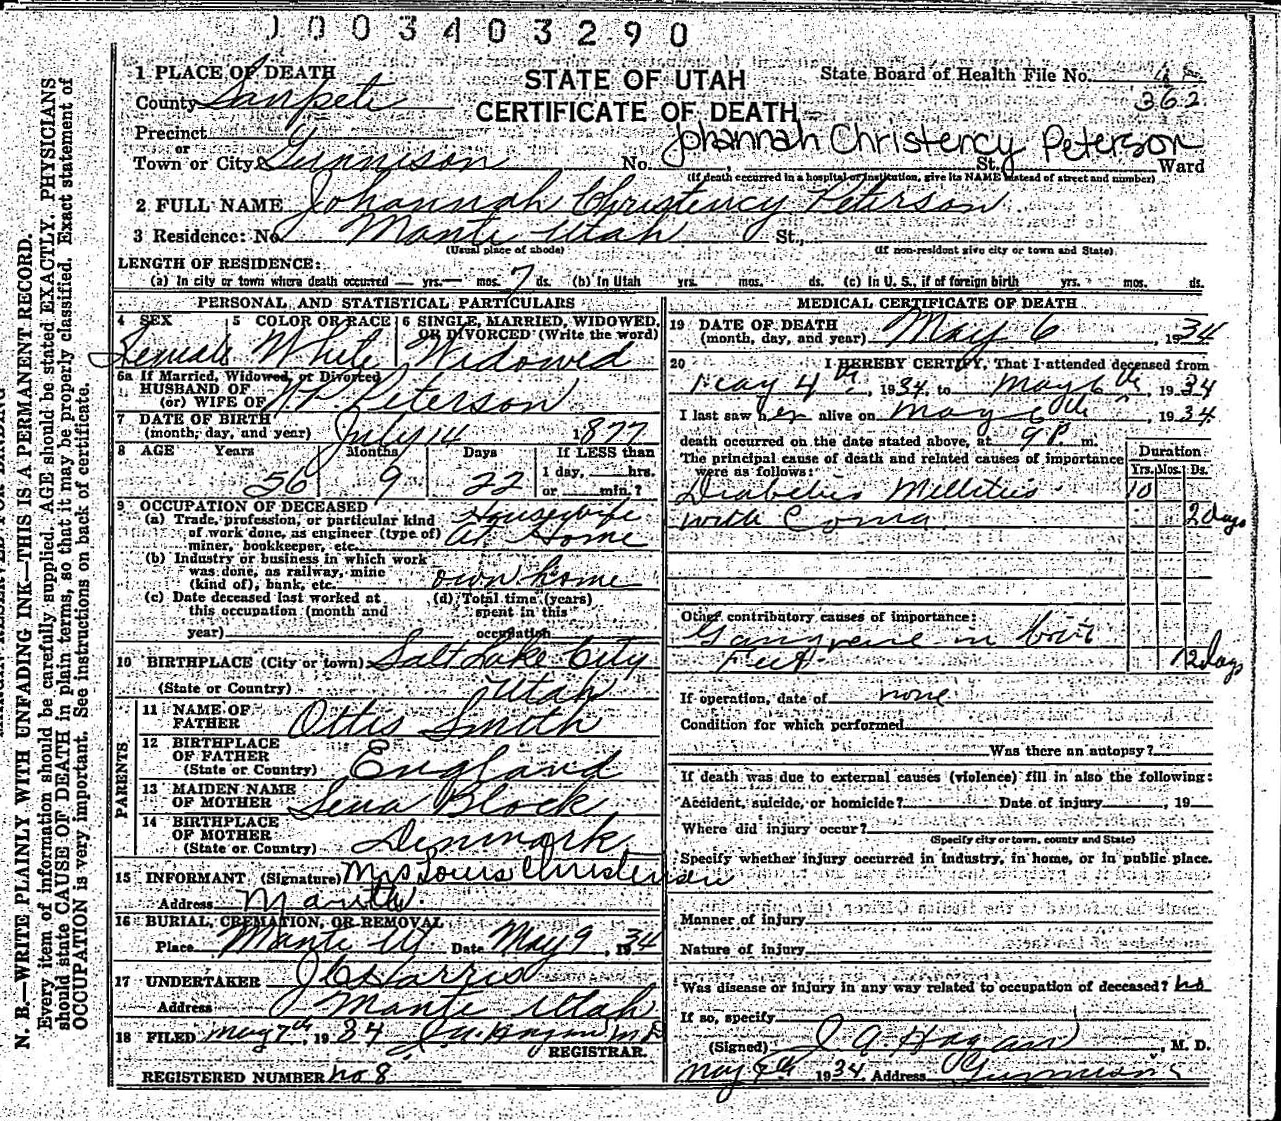 1003403290
1 PLACE OF DEATH
STATE OF UTAH
State Board of Health File No. 48
County Sanpete
CERTIFICATE OF DEATH
362
Precinct
or
Town or City Gunnison No. Johannah Christency Peterson St., Ward
(If death occurred in a hospital or institution, give its NAME instead of street and number)
2 FULL NAME Johannah Christency Peterson
3 Residence: No. Manti Utah St.,
(Usual place of abode) (If non-resident give city or town and State)
LENGTH OF RESIDENCE:
(a) In city or town where death occurred — yrs. — mos. 7 ds. (b) In Utah yrs. mos. ds. (c) In U. S., if of foreign birth yrs. mos. ds.
PERSONAL AND STATISTICAL PARTICULARS
4 SEX 5 COLOR OR RACE 6 SINGLE, MARRIED, WIDOWED, OR DIVORCED (Write the word)
Female White Widowed
6a If Married, Widowed, or Divorced
HUSBAND OF
(or) WIFE OF N.P. Peterson
7 DATE OF BIRTH
(month, day, and year) July 14 1877
8 AGE Years Months Days If LESS than
1 day, hrs.
56 9 22 or min.?
9 OCCUPATION OF DECEASED
(a) Trade, profession, or particular kind of work done, as engineer (type of) miner, bookkeeper, etc. Housewife at Home
(b) Industry or business in which work was done, as railway, mine (kind of), bank, etc. own home
(c) Date deceased last worked at this occupation (month and year)
(d) Total time (years) spent in this occupation
10 BIRTHPLACE (City or town) Salt Lake City
(State or Country) Utah
PARENTS
11 NAME OF FATHER Ottis Smith
12 BIRTHPLACE OF FATHER (State or Country) England
13 MAIDEN NAME OF MOTHER Sena Block
14 BIRTHPLACE OF MOTHER (State or Country) Denmark
15 INFORMANT (Signature) Mrs Louis Christensen
Address Manti
16 BURIAL, CREMATION, OR REMOVAL
Place Manti Ut Date May 9, 1934
17 UNDERTAKER J C Harris
Address Manti Utah
18 FILED May 7th, 1934 J.A. Hagan M D
REGISTRAR.
REGISTERED NUMBER no. 8
MEDICAL CERTIFICATE OF DEATH
19 DATE OF DEATH
(month, day, and year) May 6, 1934
20 I HEREBY CERTIFY, That I attended deceased from
May 4th, 1934, to May 6th, 1934
I last saw her alive on May 6th, 1934
death occurred on the date stated above, at 9 P. m.
The principal cause of death and related causes of importance were as follows:
Duration
Yrs. Mos. Ds.
Diabetus Mellitus 10
with Coma 2 days
Other contributory causes of importance:
Gangrene in both
Feet 12 days
If operation, date of none
Condition for which performed
Was there an autopsy?
If death was due to external causes (violence) fill in also the following:
Accident, suicide, or homicide? Date of injury , 19
Where did injury occur?
(Specify city or town, county and State)
Specify whether injury occurred in industry, in home, or in public place.
Manner of injury
Nature of injury
Was disease or injury in any way related to occupation of deceased? no
If so, specify
(Signed) J A Hagan, M. D.
May 7th 1934, Address Gunnison
N. B.—WRITE PLAINLY WITH UNFADING INK—THIS IS A PERMANENT RECORD.
Every item of information should be carefully supplied. AGE should be stated EXACTLY. PHYSICIANS
should state CAUSE OF DEATH in plain terms, so that it may be properly classified. Exact statement of
OCCUPATION is very important. See instructions on back of certificate.